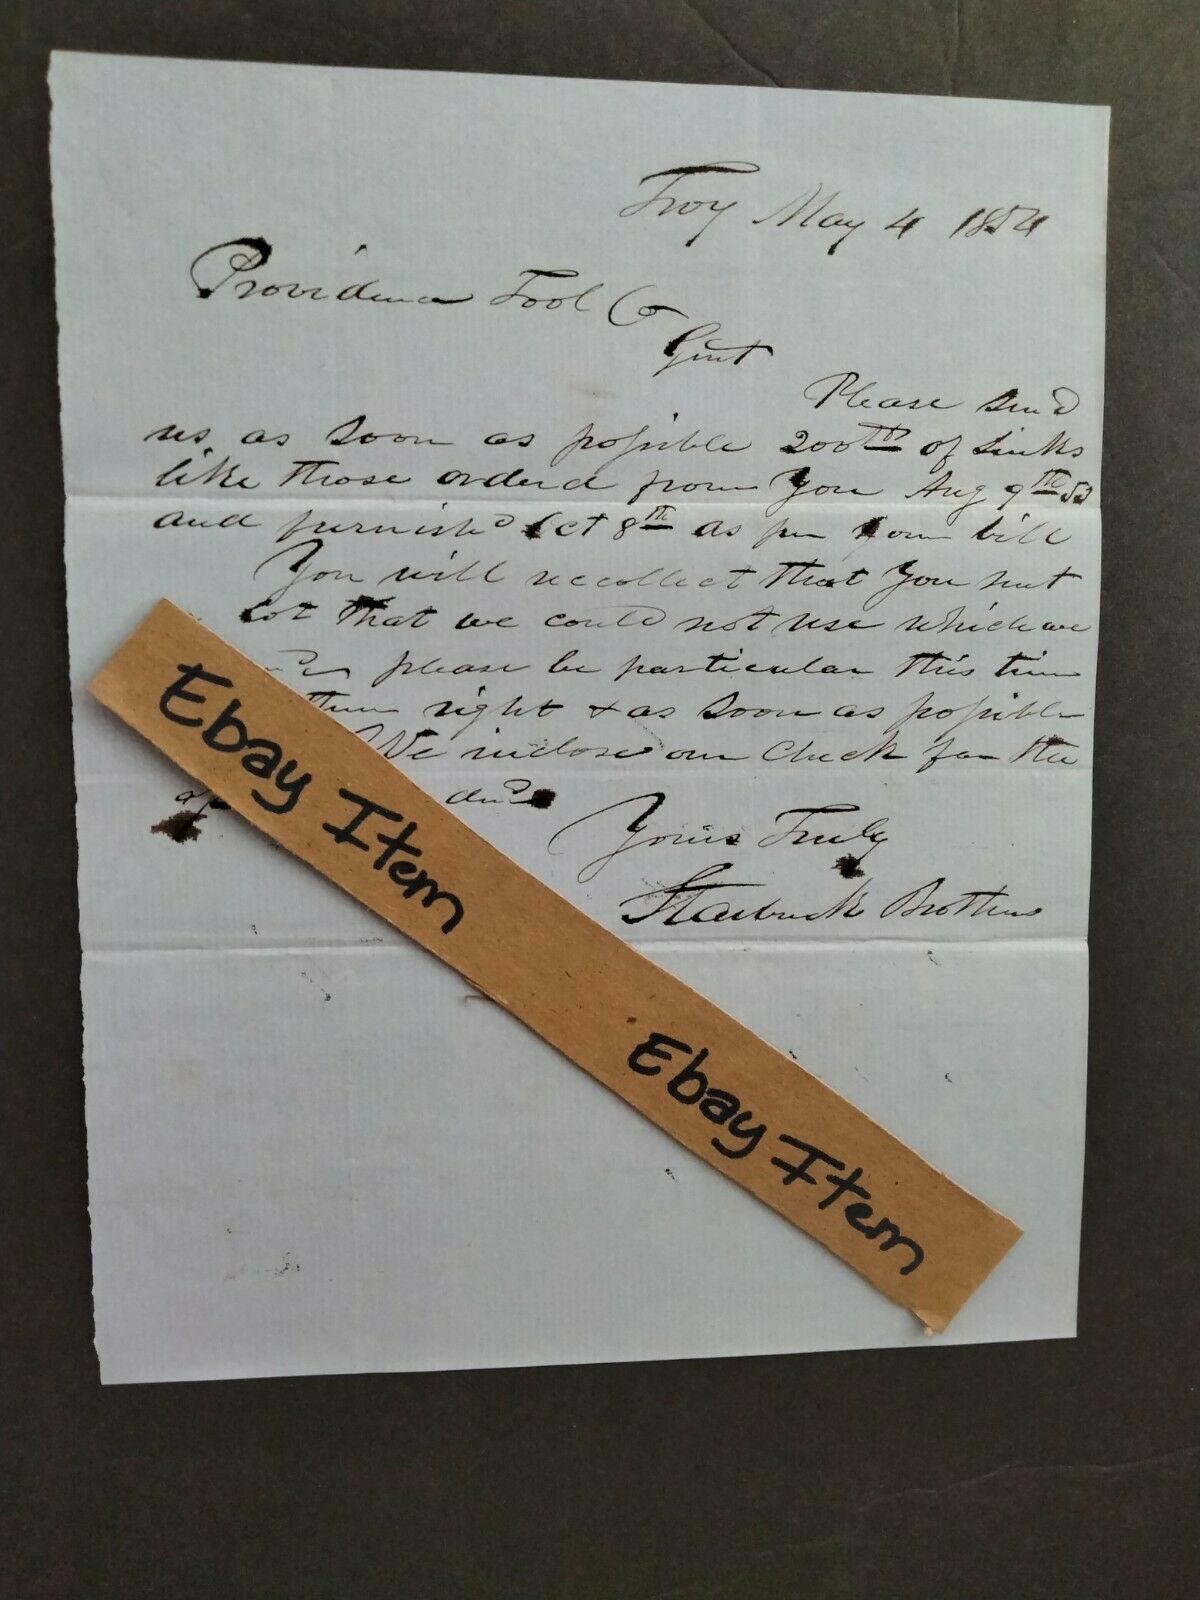 Troy May 4 1854
Providence Tool Co
Gent
Please send
us as soon as possible 200 of links
like those orderd from You Aug 9th 53
and furnishd Oct 8th as per your bill
You will reccollect that You sent
lot that we could not use which we
please be particular this time
them right & as soon as possible
We inclose our Check for the
Yours Truly
Starbuck Brothers
Ebay Item
Ebay Item